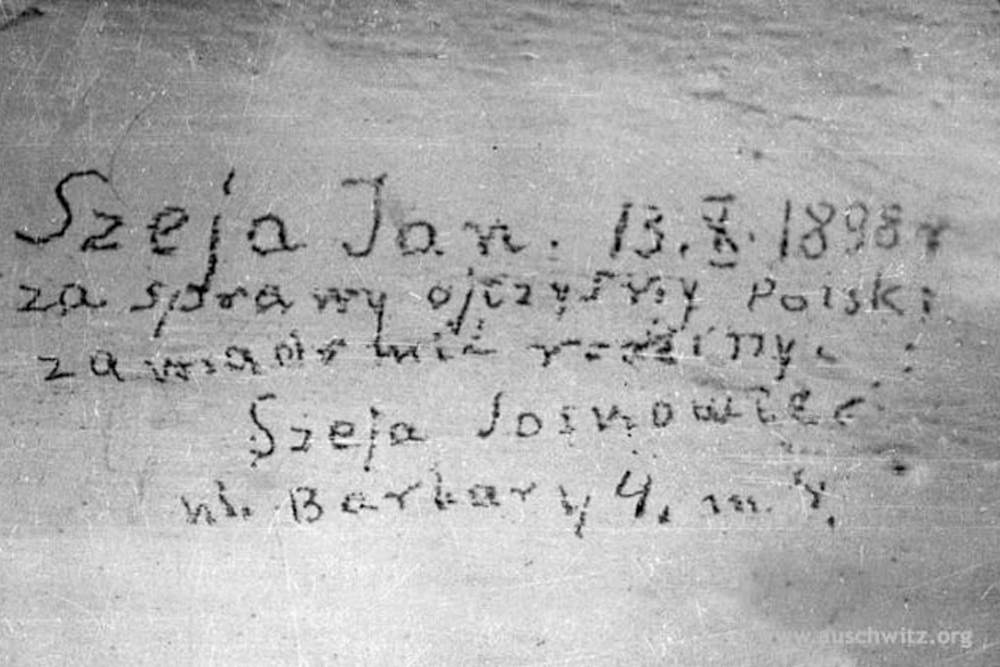 Szeja Jan. 13.X.1898 r
za sprawy ojczyzny Polski
rodziny.
Szeja Sosnowiec
ul. Barbary 4. m.
www.auschwitz.org